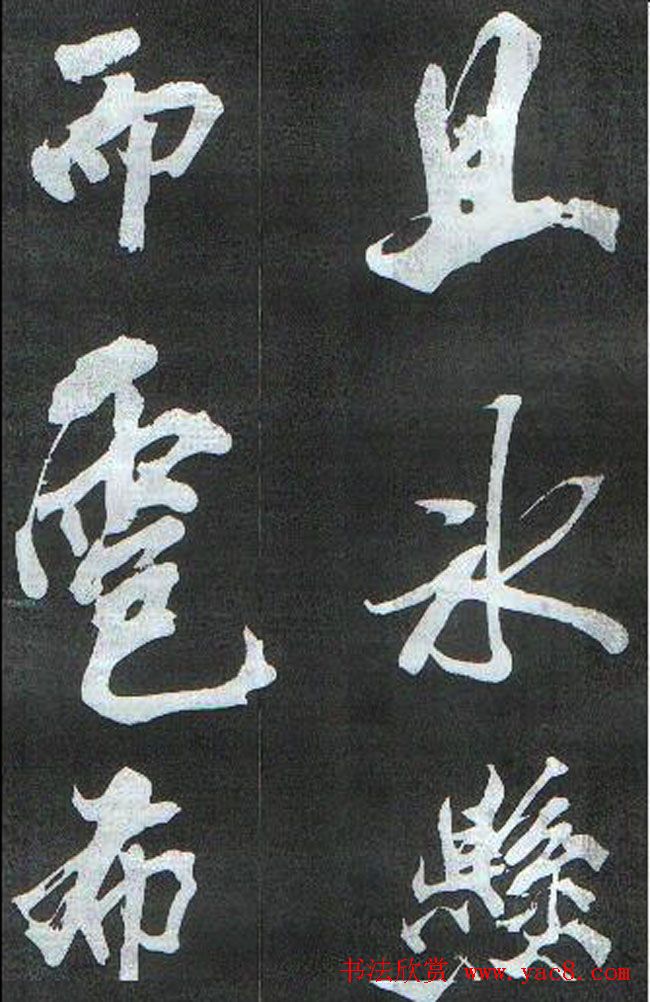 且冰懸
而雹布
书法欣赏 www.yac8.com